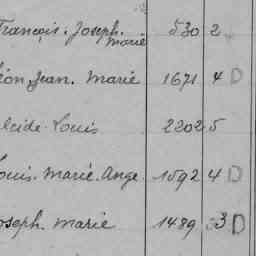 François. Joseph. 530 2
Marie
Léon Jean. Marie 1671 4 D
Alcide Louis 2202 5
Louis. Marie. Ange 1592 4 D
Joseph. Marie 1489 3 D